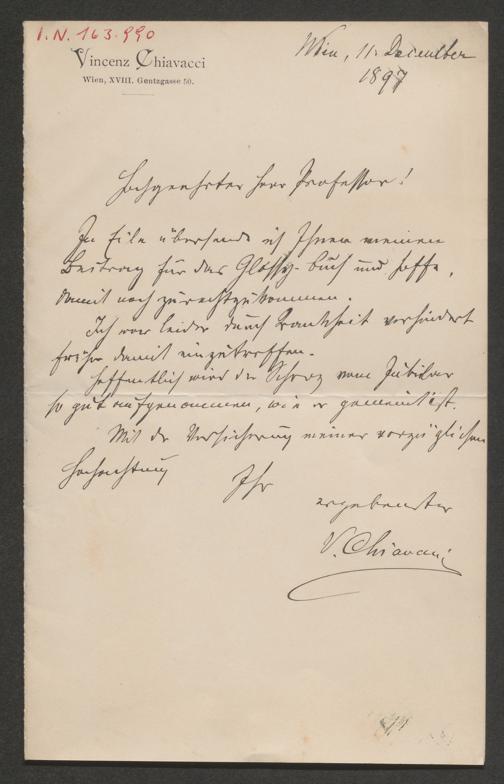 I. N. 163.990
Vincenz Chiavacci
Wien, XVIII. Gentzgasse 50.
Wien, 11. December
1897
Hochgeehrter Herr Professor!
In Eile übersende ich Ihnen meinen
Beitrag für das Glossy-Buch und hoffe,
damit noch zurechtzukommen.
Ich war leider durch Krankheit verhindert
früher damit einzutreffen.
Hoffentlich wird der Scherz vom Jubilar
so gut aufgenommen, wie er gemeint ist.
Mit der Versicherung meiner vorzüglichen
Hochachtung
Ihr
ergebenster
V. Chiavacci